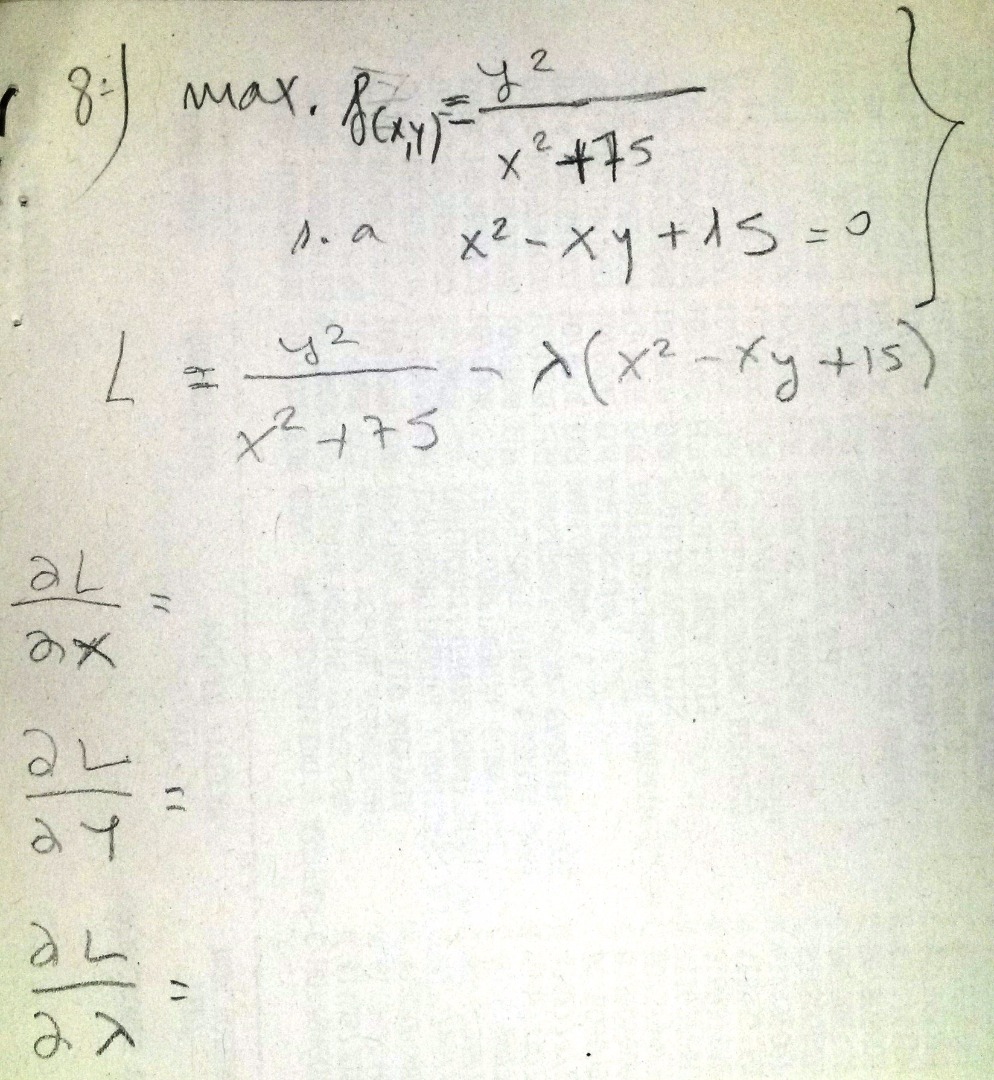 8:) max. f(x,y) = y² / x² + 75
s. a x² - xy + 15 = 0
L = y² / x² + 75 - λ(x² - xy + 15)
∂L / ∂x =
∂L / ∂y =
∂L / ∂λ =